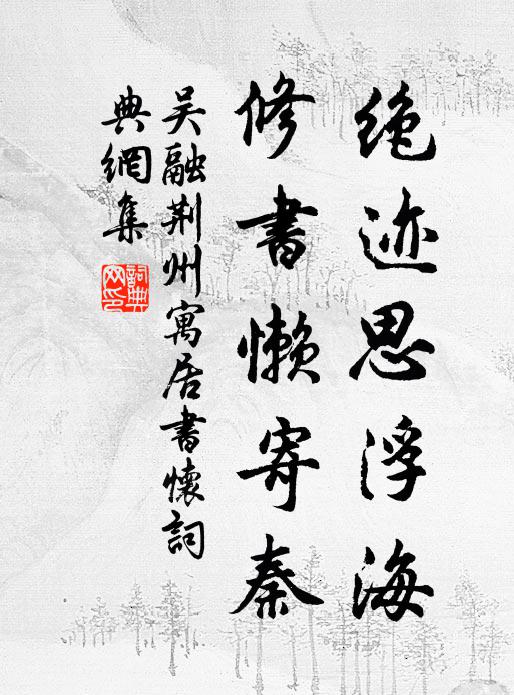 绝迹思浮海
修書懒寄秦
吴融荆州寓居書懷詞
典網集
詞典网印